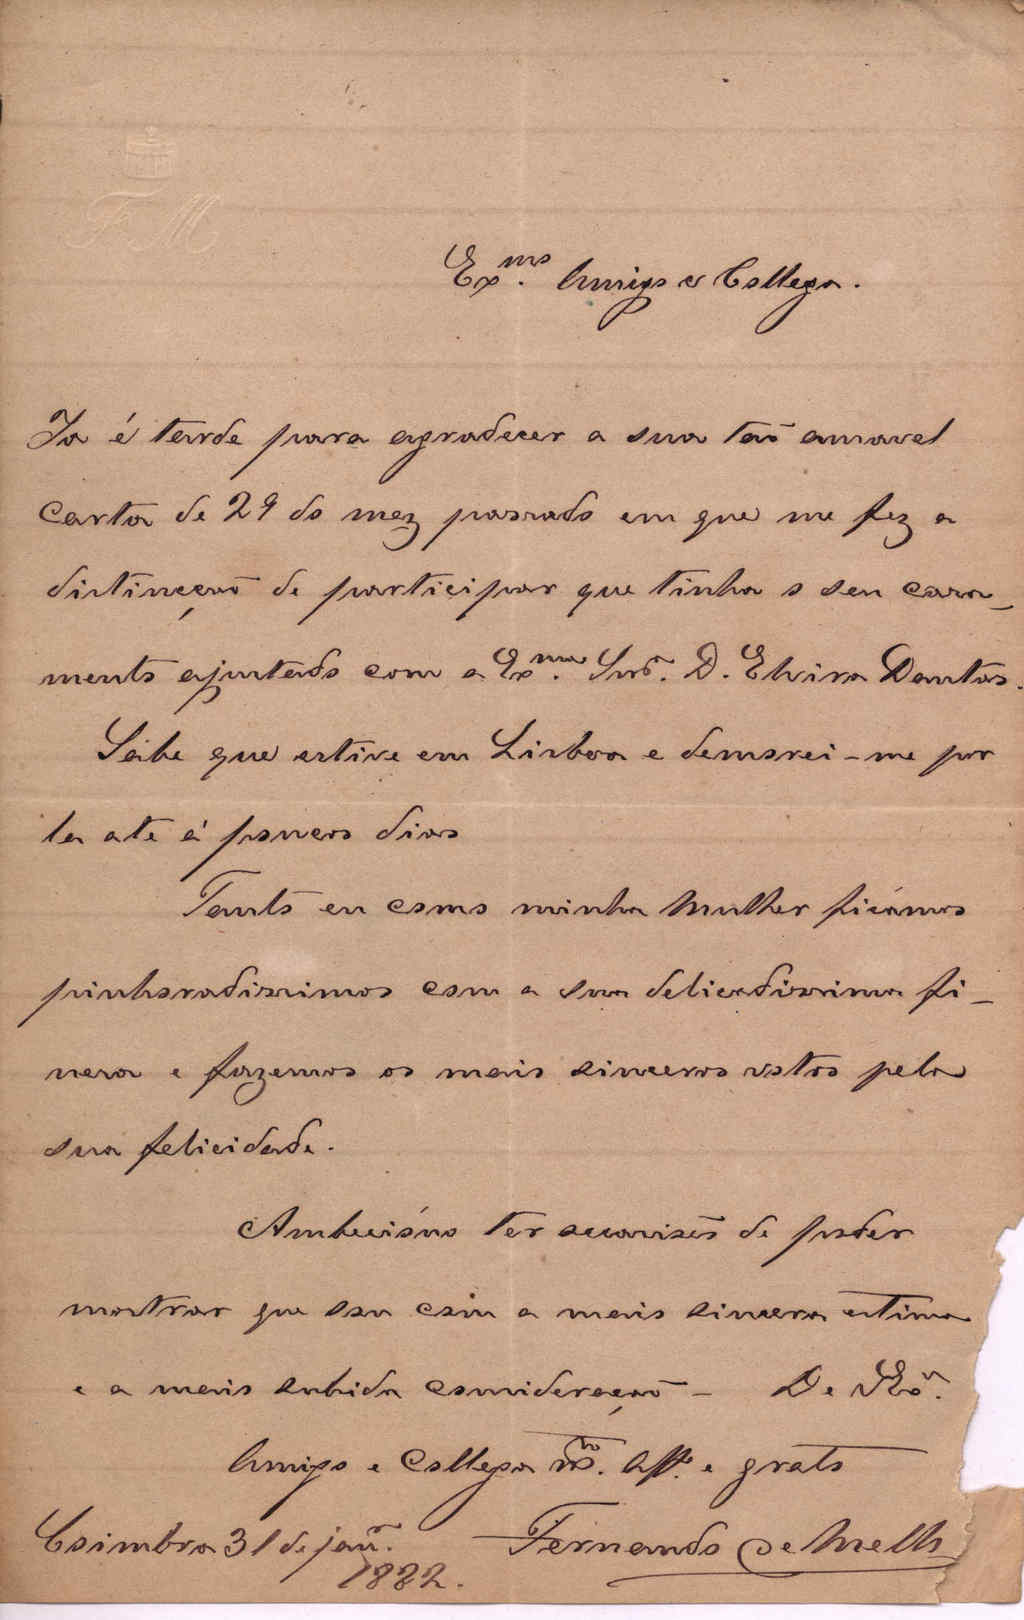 F M
Ex.mo Amigo e Collega.
Ja é tarde para agradecer a sua tão amavel
carta de 29 do mez passado em que me fez a
distincção de participar que tinha o seu casa-
mento ajustado com a Ex.ma Snr.ª D. Elvira Dantas.
Sabe que estive em Lisboa e demorei-me por
la até á poucos dias
Tanto eu como minha mulher ficámos
pinhoradissimos com a sua delicadissima fi-
neza e fazemos os mais sinceros votos pela
sua felicidade.
ter occasiões de poder
mostrar que sou com a mais sincera estima
e a mais subida consideração - De
Amigo e Collega m.to Aff.º e grato
Coimbra 31 de jan.ro Fernando de Mello
1882.